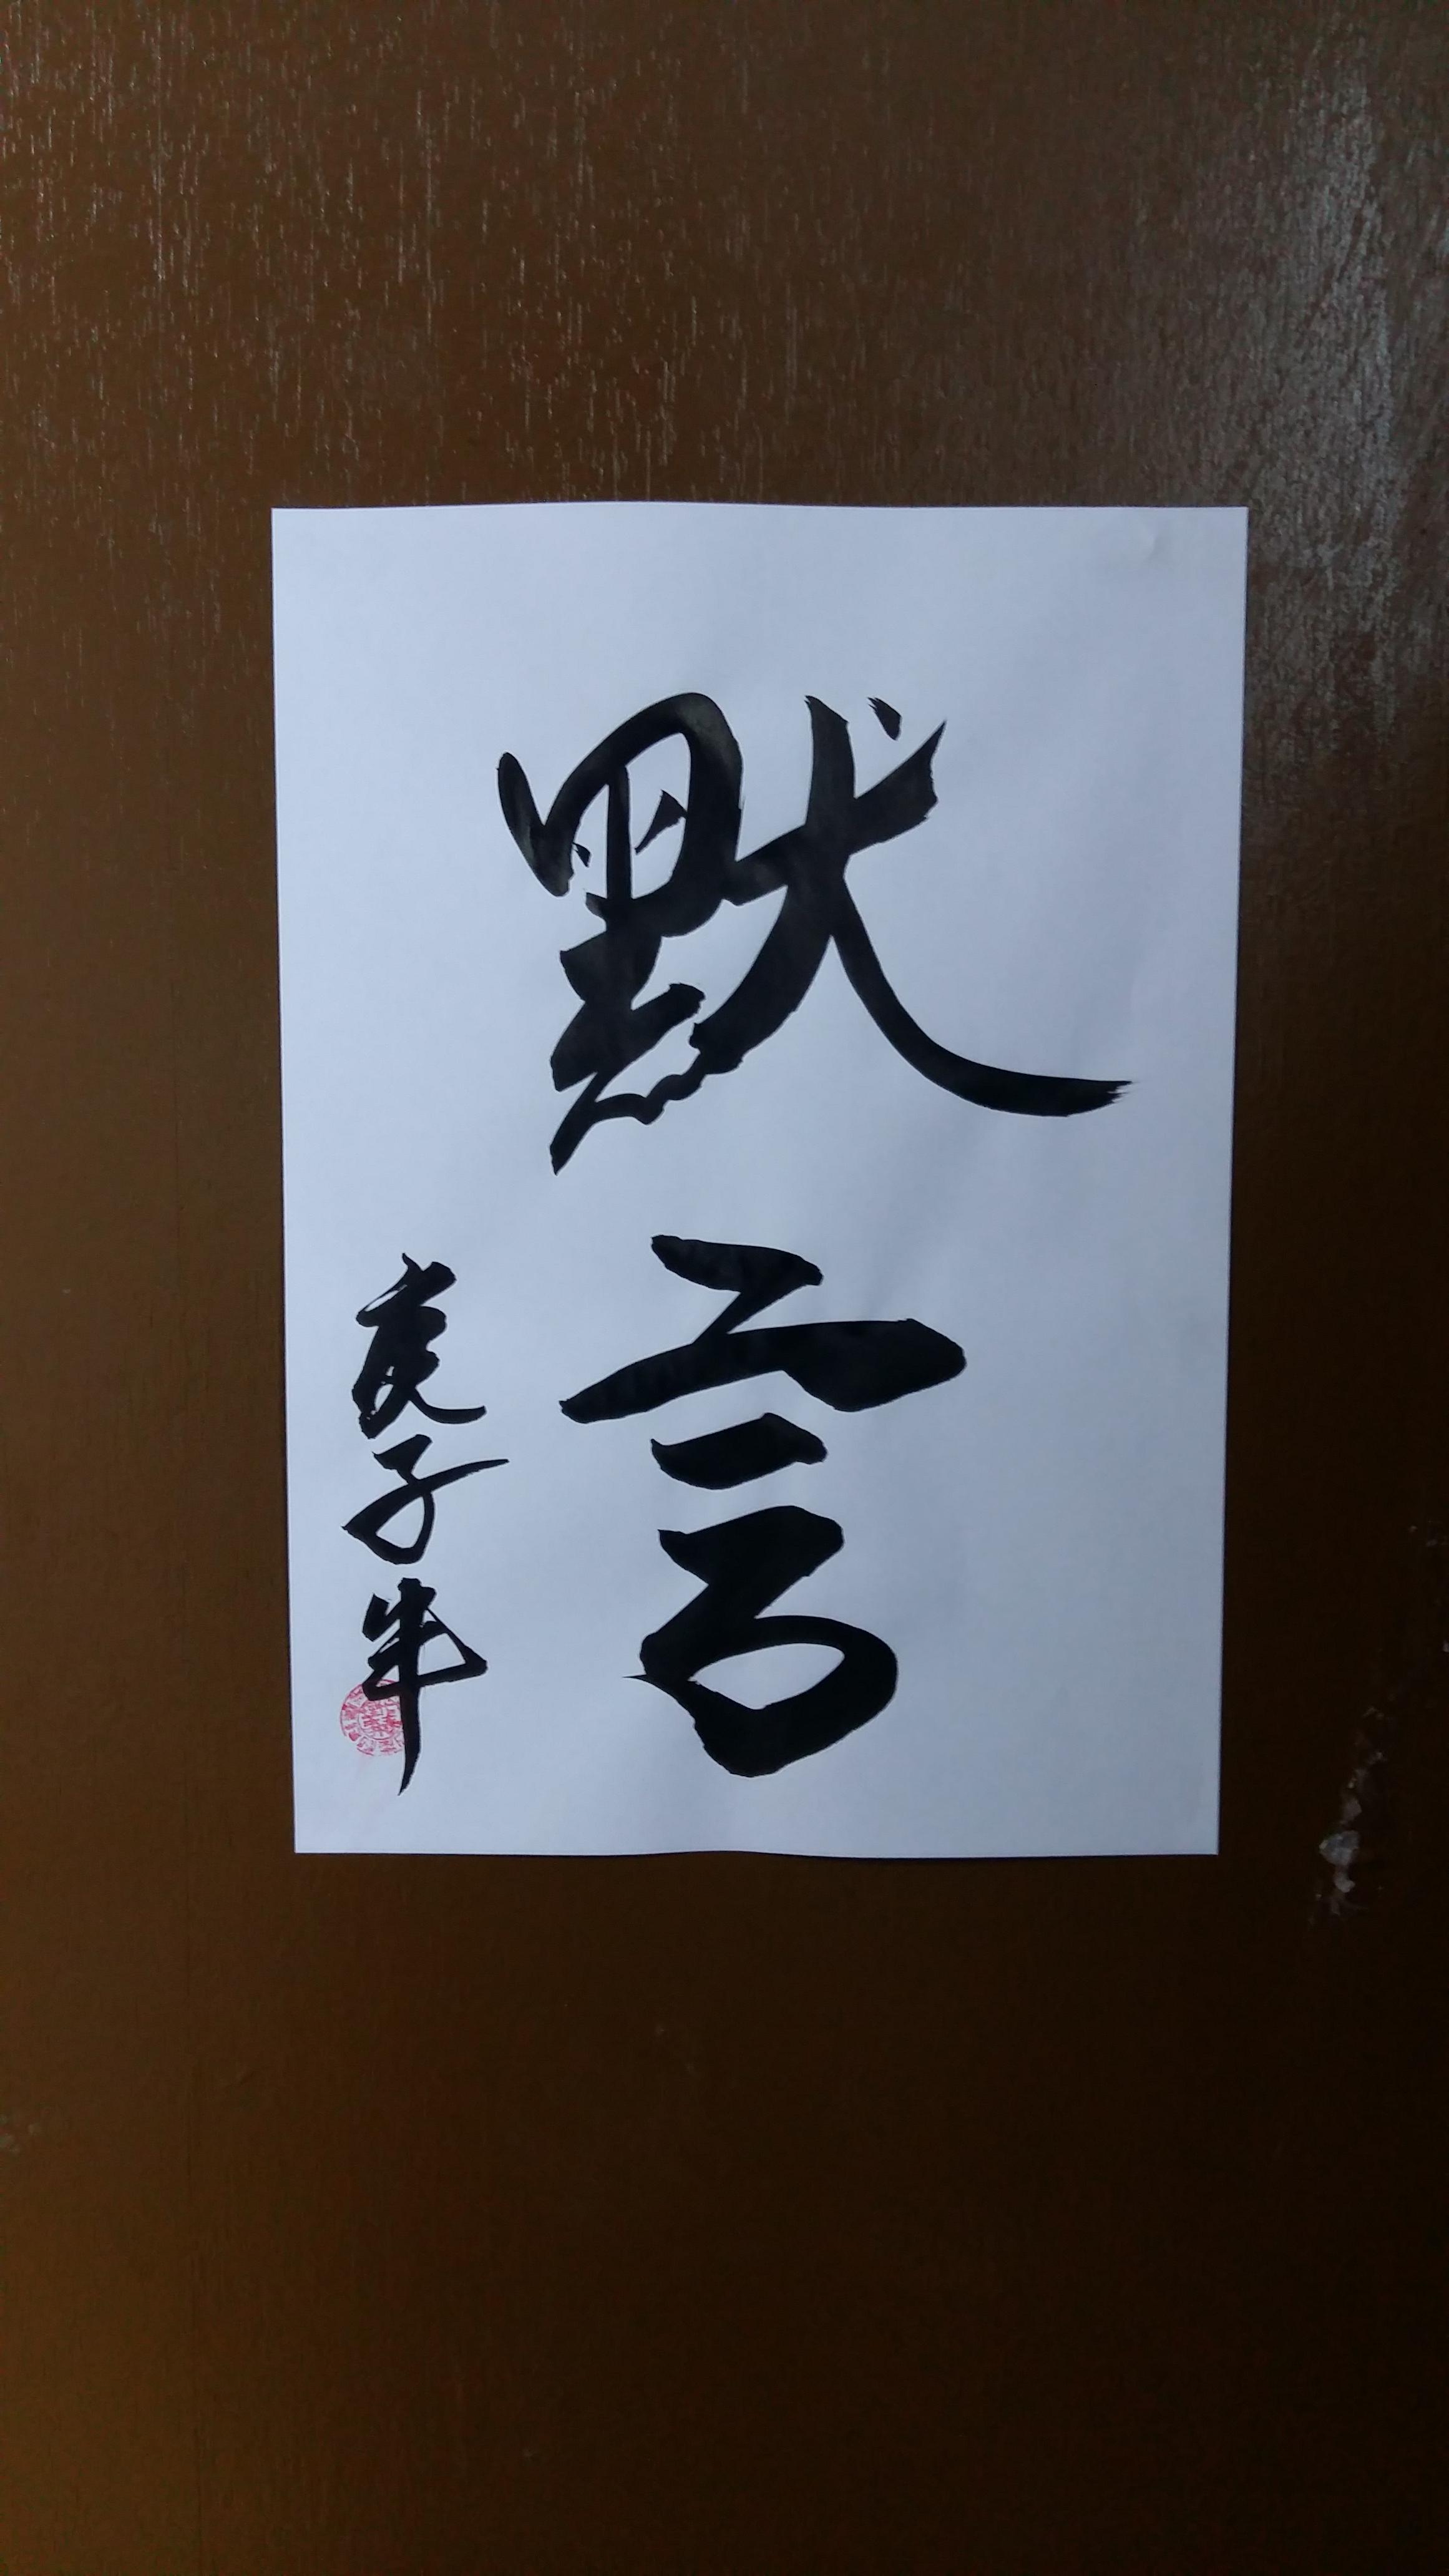 默言
庚子年